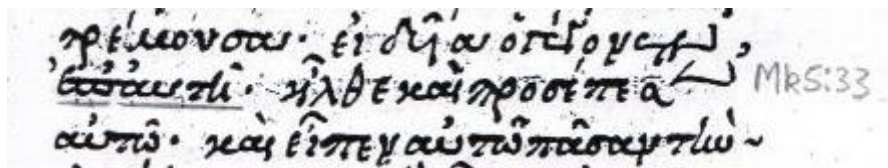 τρέμουσα· εἰδυῖα ὃ γέγονεν
ἐπ' αὐτῇ· ἦλθε καὶ προσέπεσεν Mk5:33
αὐτῷ· καὶ εἶπεν αὐτῷ πᾶσαν τὴν